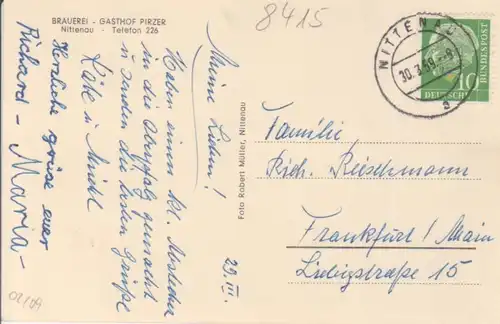 BRAUEREI - GASTHOF PIRZER
Nittenau - Telefon 226
8415
29. III.
Meine Lieben!
Haben einen kl. Abstecher
in die Oberpfalz gemacht
u. senden die besten Grüße
Käte u. Michl
Herzliche Grüsse euer
Richard - Maria -
Foto Robert Müller, Nittenau
NITTENAU
30.3.59.-8
a
10
DEUTSCHE
BUNDESPOST
Familie
Rich. Reischmann
Frankfurt/Main
Liebigstraße 15